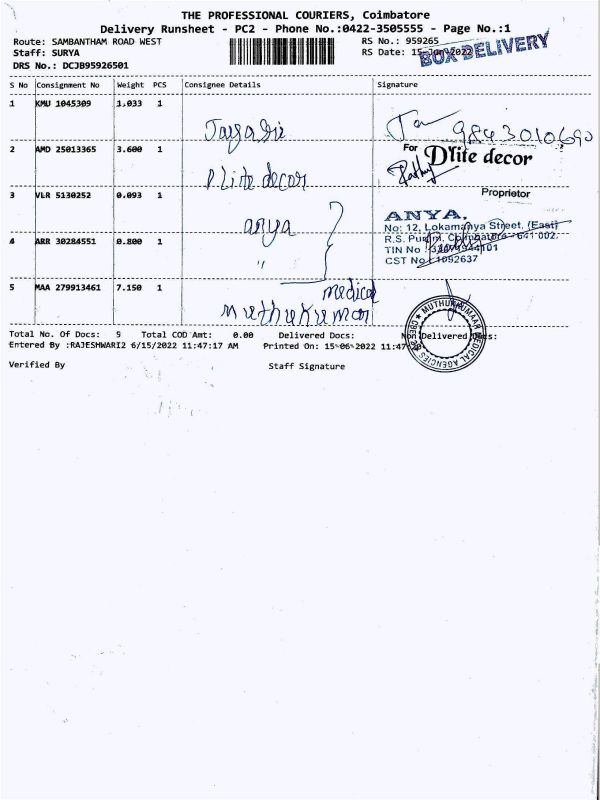 THE PROFESSIONAL COURIERS, Coimbatore
Delivery Runsheet - PC2 - Phone No.:0422-3505555 - Page No.:1
Route: SAMBANTHAM ROAD WEST
RS No.: 959265
Staff: SURYA
RS Date: 15-Jun-2022
BOX DELIVERY
DRS No.: DCJB95926501
S No Consignment No Weight PCS Consignee Details Signature
1 KMU 1045309 1.033 1
9843010690
2 AMD 25013365 3.600 1
For Dlite decor
Dlite decor
Proprietor
3 VLR 5130252 0.093 1
anya
ANYA,
No: 12, Lokamanya Street, (East)
R.S. Puram, Coimbatore - 641 002.
4 ARR 30284551 0.800 1
"
TIN No
CST No: 1092637
5 MAA 279913461 7.150 1
medical
muthukumar
MUTHUKUMAAR MEDICAL AGENCIES
Total No. Of Docs: 5 Total COD Amt: 0.00 Delivered Docs: Not Delivered Docs:
Entered By :RAJESHWARI2 6/15/2022 11:47:17 AM Printed On: 15-06-2022 11:47
Verified By Staff Signature